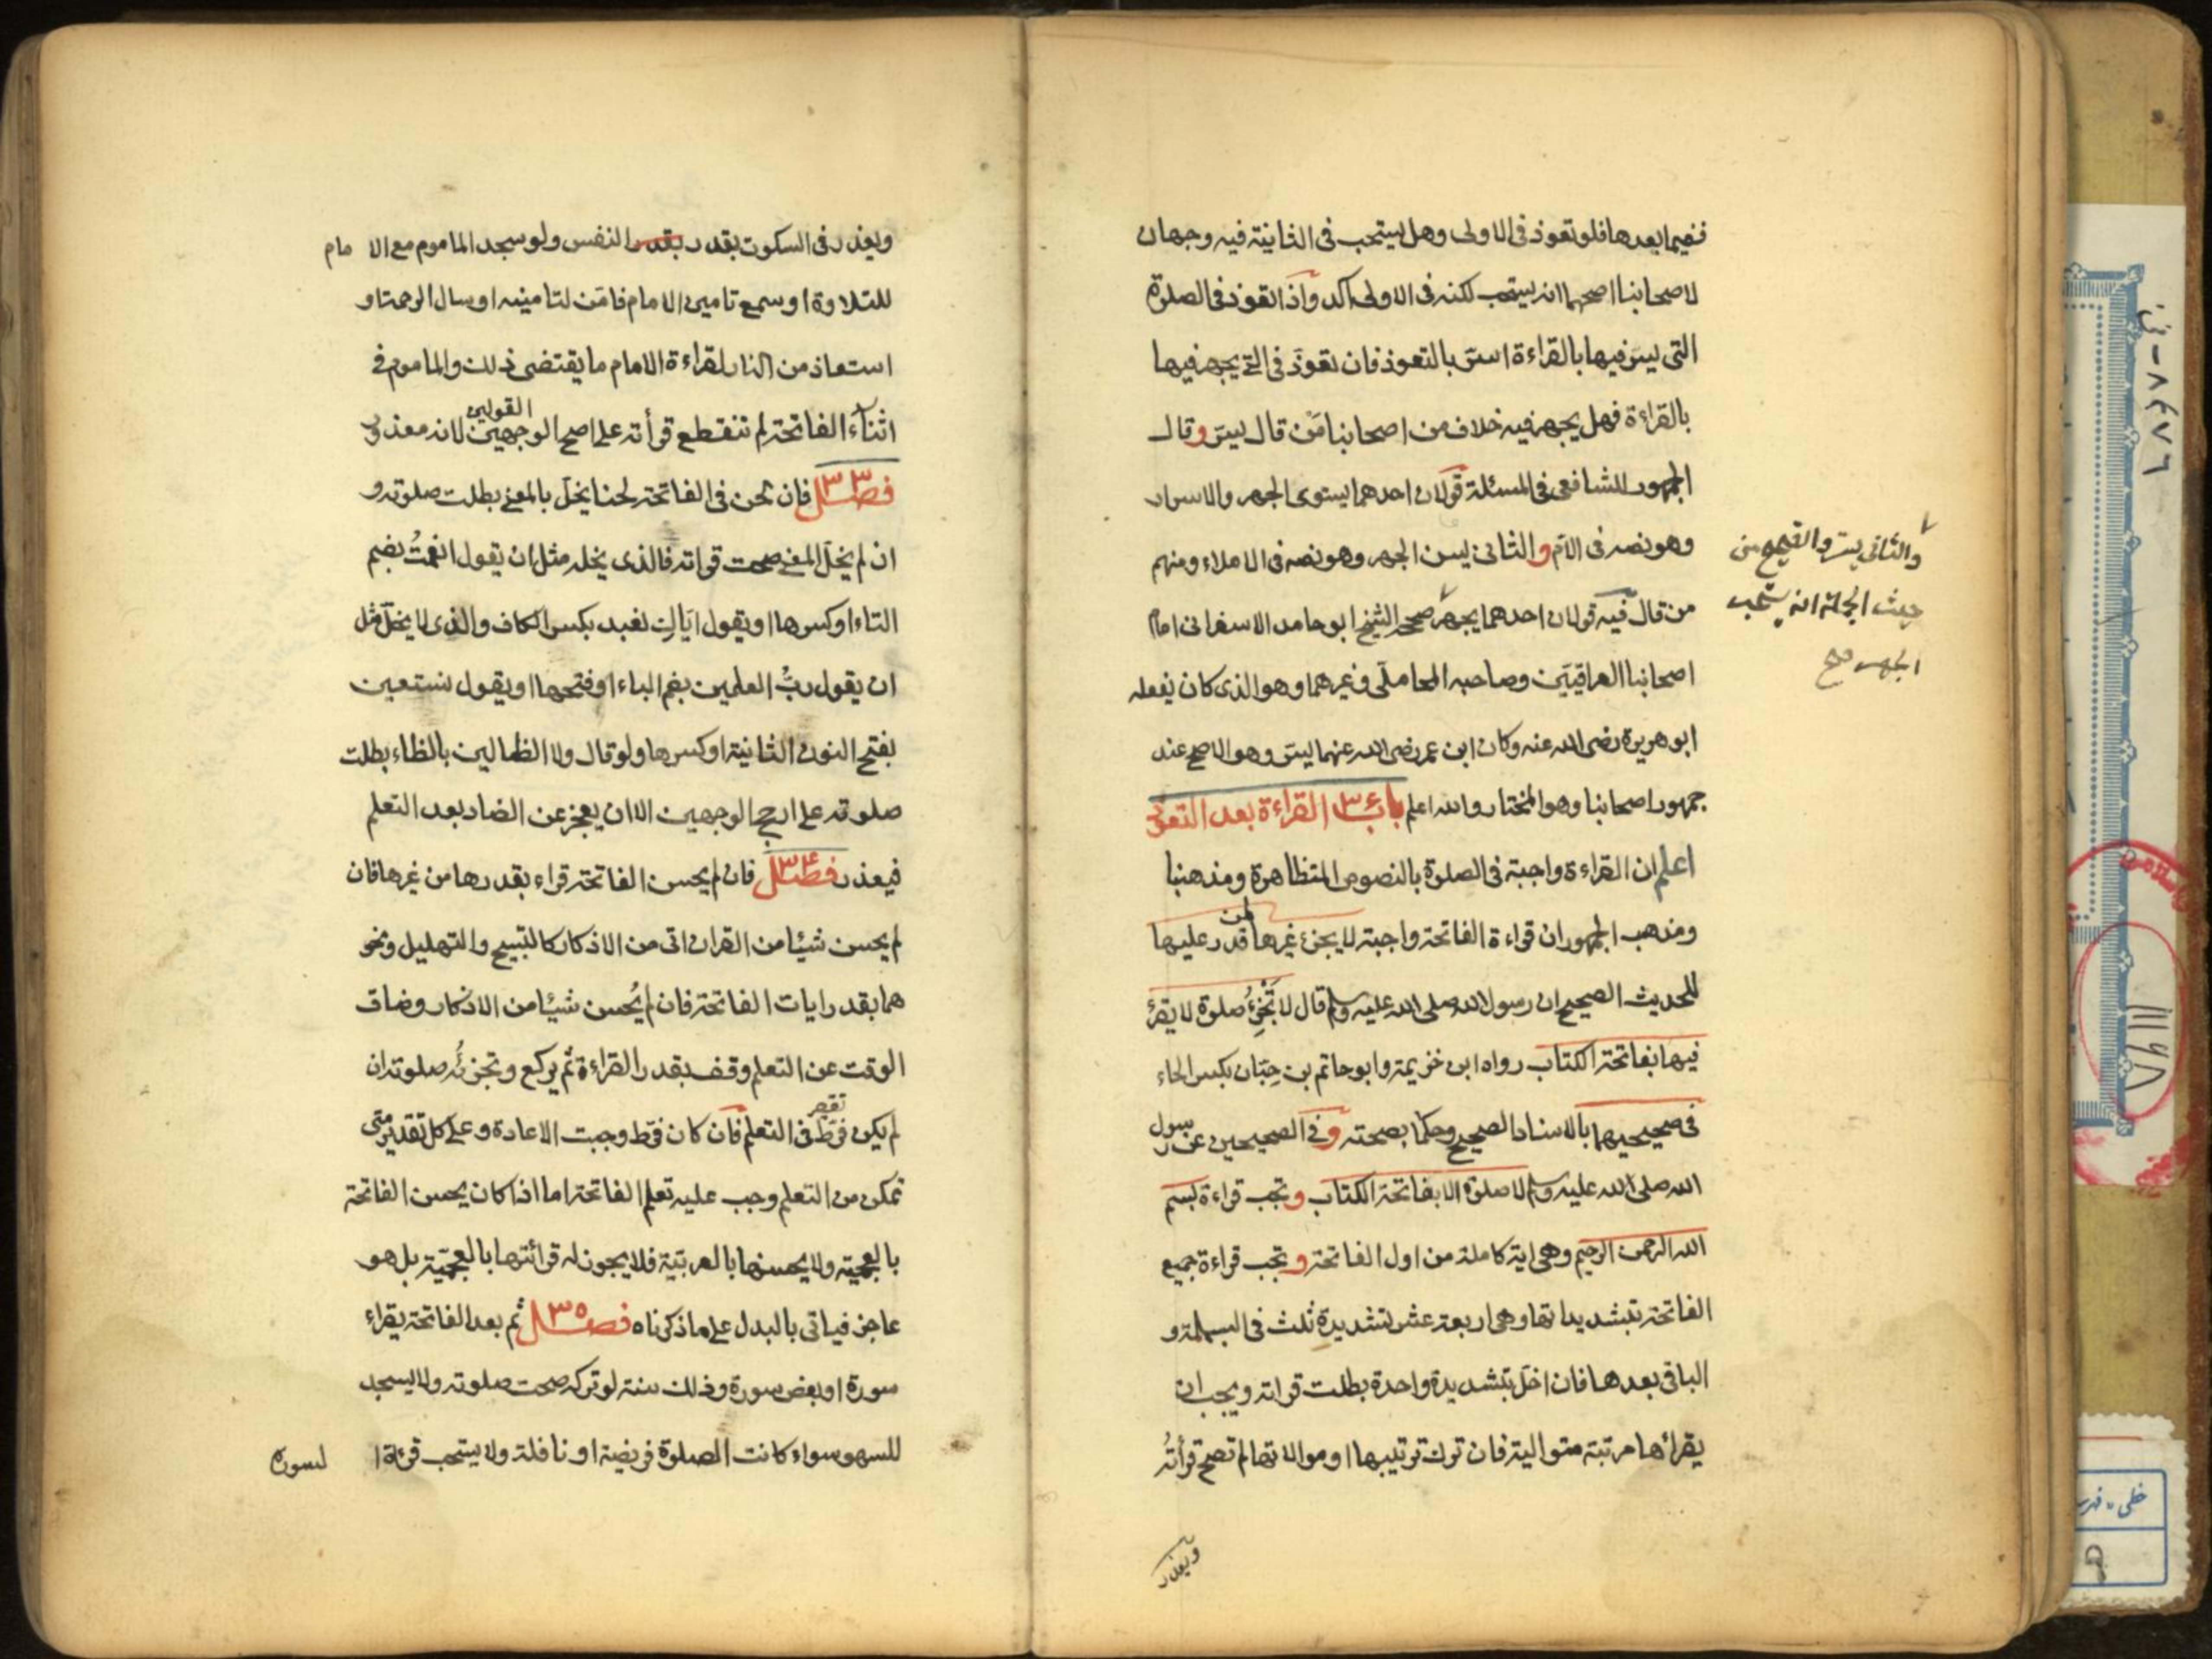 ففيما بعدها فلو تعوذ في الاولى وهل يستحب في الثانية فيه وجهان
لاصحابنا اصحهما انه يستحب لكنه في الاولى آكد واذا تعوذ في الصلوة
التي يسر فيها بالقراءة اسر بالتعوذ فان تعوذ في التي يجهر فيها
بالقراءة فهل يجهر فيه خلاف من اصحابنا من قال يسر و قال
الجمهور للشافعي في المسئلة قولان احدهما يستوى الجهر والاسرار
وهو نصه في الام و الثاني ليسن الجهر وهو نصه في الاملاء ومنهم
من قال فيه قولان احدهما يجهر صححه الشيخ ابو حامد الاسفرانى امام
اصحابنا العراقيين وصاحبه المحاملي وغيرهما وهو الذى كان يفعله
ابو هريرة رضى الله عنه وكان ابن عمر رضى الله عنهما يسر وهو الاصح عند
جمهور اصحابنا وهو المختار والله اعلم باب ٣٤ القراءة بعد التعوذ
اعلم ان القراءة واجبة في الصلوة بالنصوص المتظاهرة ومذهبنا
ومذهب الجمهور ان قراءة الفاتحة واجبة لا يجزئ غيرها لمن قدر عليها
للحديث الصحيح ان رسول الله صلى الله عليه وسلم قال لا تجزئ صلوة لا يقرئ
فيها بفاتحة الكتاب رواه ابن خزيمة وابو حاتم بن حبان بكسر الحاء
في صحيحيهما بالاسناد الصحيح وحكما بصحته و في الصحيحين عن رسول
الله صلى الله عليه وسلم لا صلوة الا بفاتحة الكتاب و تجب قراءة بسم
الله الرحمن الرحيم وهى اية كاملة من اول الفاتحة و تجب قراءة جميع
الفاتحة بتشديداتها وهى اربعة عشر تشديدة ثلث في البسملة و
الباقى بعدها فان اخل بتشديدة واحدة بطلت قراته ويجب ان
يقرأها مرتبة متوالية فان ترك ترتيبها او موالاتها لم تصح قرأته
ويعذر
والثاني يسر والصحيح من
حيث الجملة انه يستحب
الجهر صح
ويعذر في السكوت بقدر بقدر النفس ولو سجد الماموم مع الامام
للتلاوة او سمع تامين الامام فامن لتامينه او سال الرحمة او
استعاذ من النار لقراءة الامام ما يقتضى ذلك والماموم في
اثناء الفاتحة لم تنقطع قرأته على اصح الوجهين القولين لانه معذور
فصل ٣٣ فان لحن في الفاتحة لحنا يخل بالمعنى بطلت صلوته و
ان لم يخل المعنى صحت قراته فالذى يخله مثل ان يقول انعمت بضم
التاء او كسرها او يقول اياك نعبد بكسر الكاف والذى لا يخل مثل
ان يقول رب العلمين بضم الباء او فتحها او يقول نستعين
بفتح النون الثانية او كسرها ولو قال ولا الظالين بالظاء بطلت
صلوته على ارجح الوجهين الا ان يعجز عن الضاد بعد التعلم
فيعذر فصل ٣٤ فان لم يحسن الفاتحة قراء بقدرها من غيرها فان
لم يحسن شيئا من القران اتى من الاذكار كالتسبيح والتهليل ونحو
هما بقدر ايات الفاتحة فان لم يُحسن شيئا من الاذكار وضاق
الوقت عن التعلم وقف بقدر القراءة ثم يركع وتجزئه صلوته ان
لم يكن فرط في التعلم فان كان فرط وجبت الاعادة وعلى كل تقدير متى
تمكن من التعلم وجب عليه تعلم الفاتحة اما اذا كان يحسن الفاتحة
بالعجمية ولا يحسنها بالعربية فلا يجوز له قرائتها بالعجمية بل هو
عاجز فياتى بالبدل على ما ذكرناه فصل ٣٥ ثم بعد الفاتحة يقراء
سورة او بعض سورة وذلك سنة لو تركه صحت صلوته ولا يسجد
للسهو سواء كانت الصلوة فريضة او نافلة ولا يستحب قرءة السورة
١١١٩٨